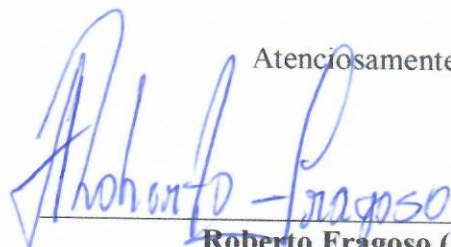 Atenciosamente
Rhoberto Fragoso
Roberto Fragoso (